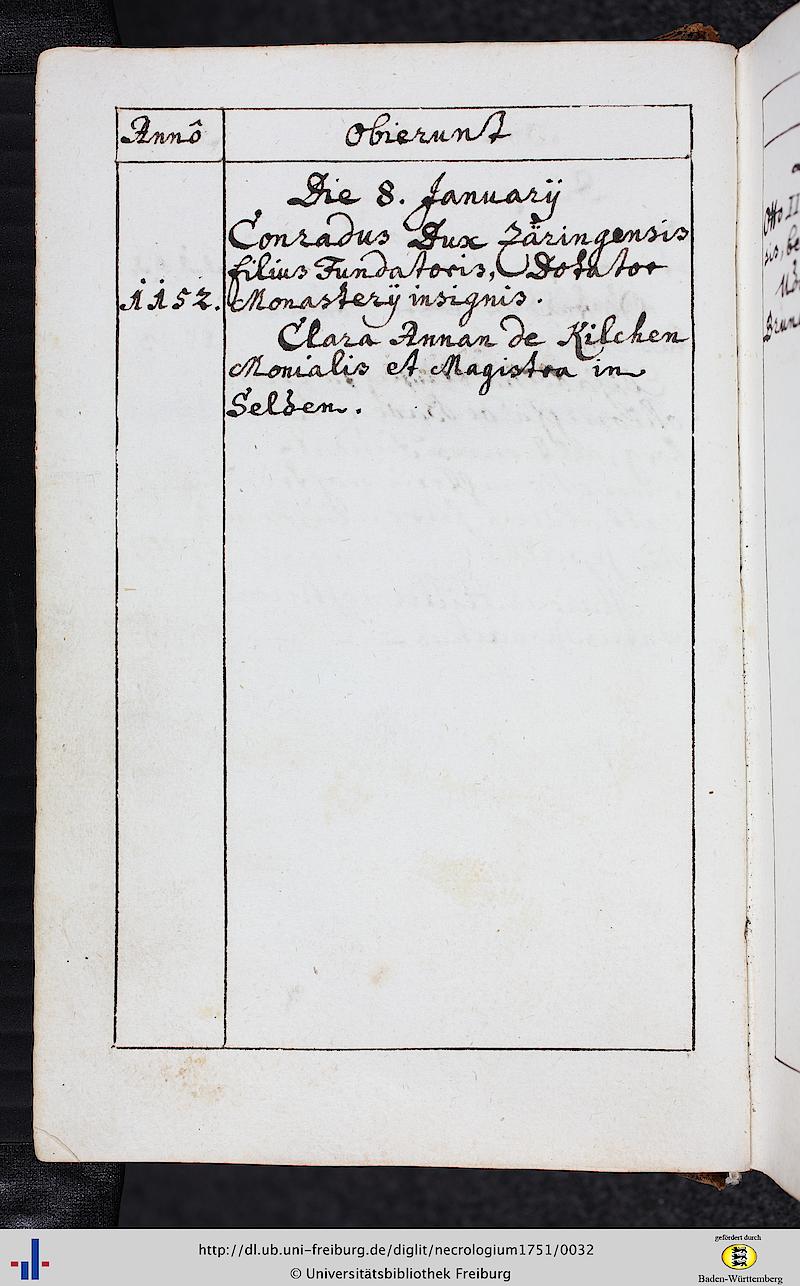 Annô
Obierunt
Die 8. Januarÿ
Conradus Dux Zäringensis
filius Fundatoris, Dotator
1152. Monasterÿ insignis.
Clara Annan de Kilchen
Monialis et Magistra in
Selden.
Otto II
sis, be
http://dl.ub.uni-freiburg.de/diglit/necrologium1751/0032
© Universitätsbibliothek Freiburg
gefördert durch
Baden-Württemberg